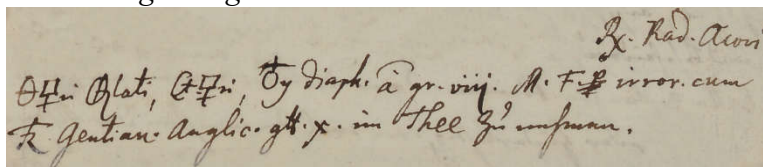 ℞. Rad. Acori
diaph. â gr. viij. M. F. irror. cum
Gentian. Anglic. gtt. x. im Thee zu nehmen.